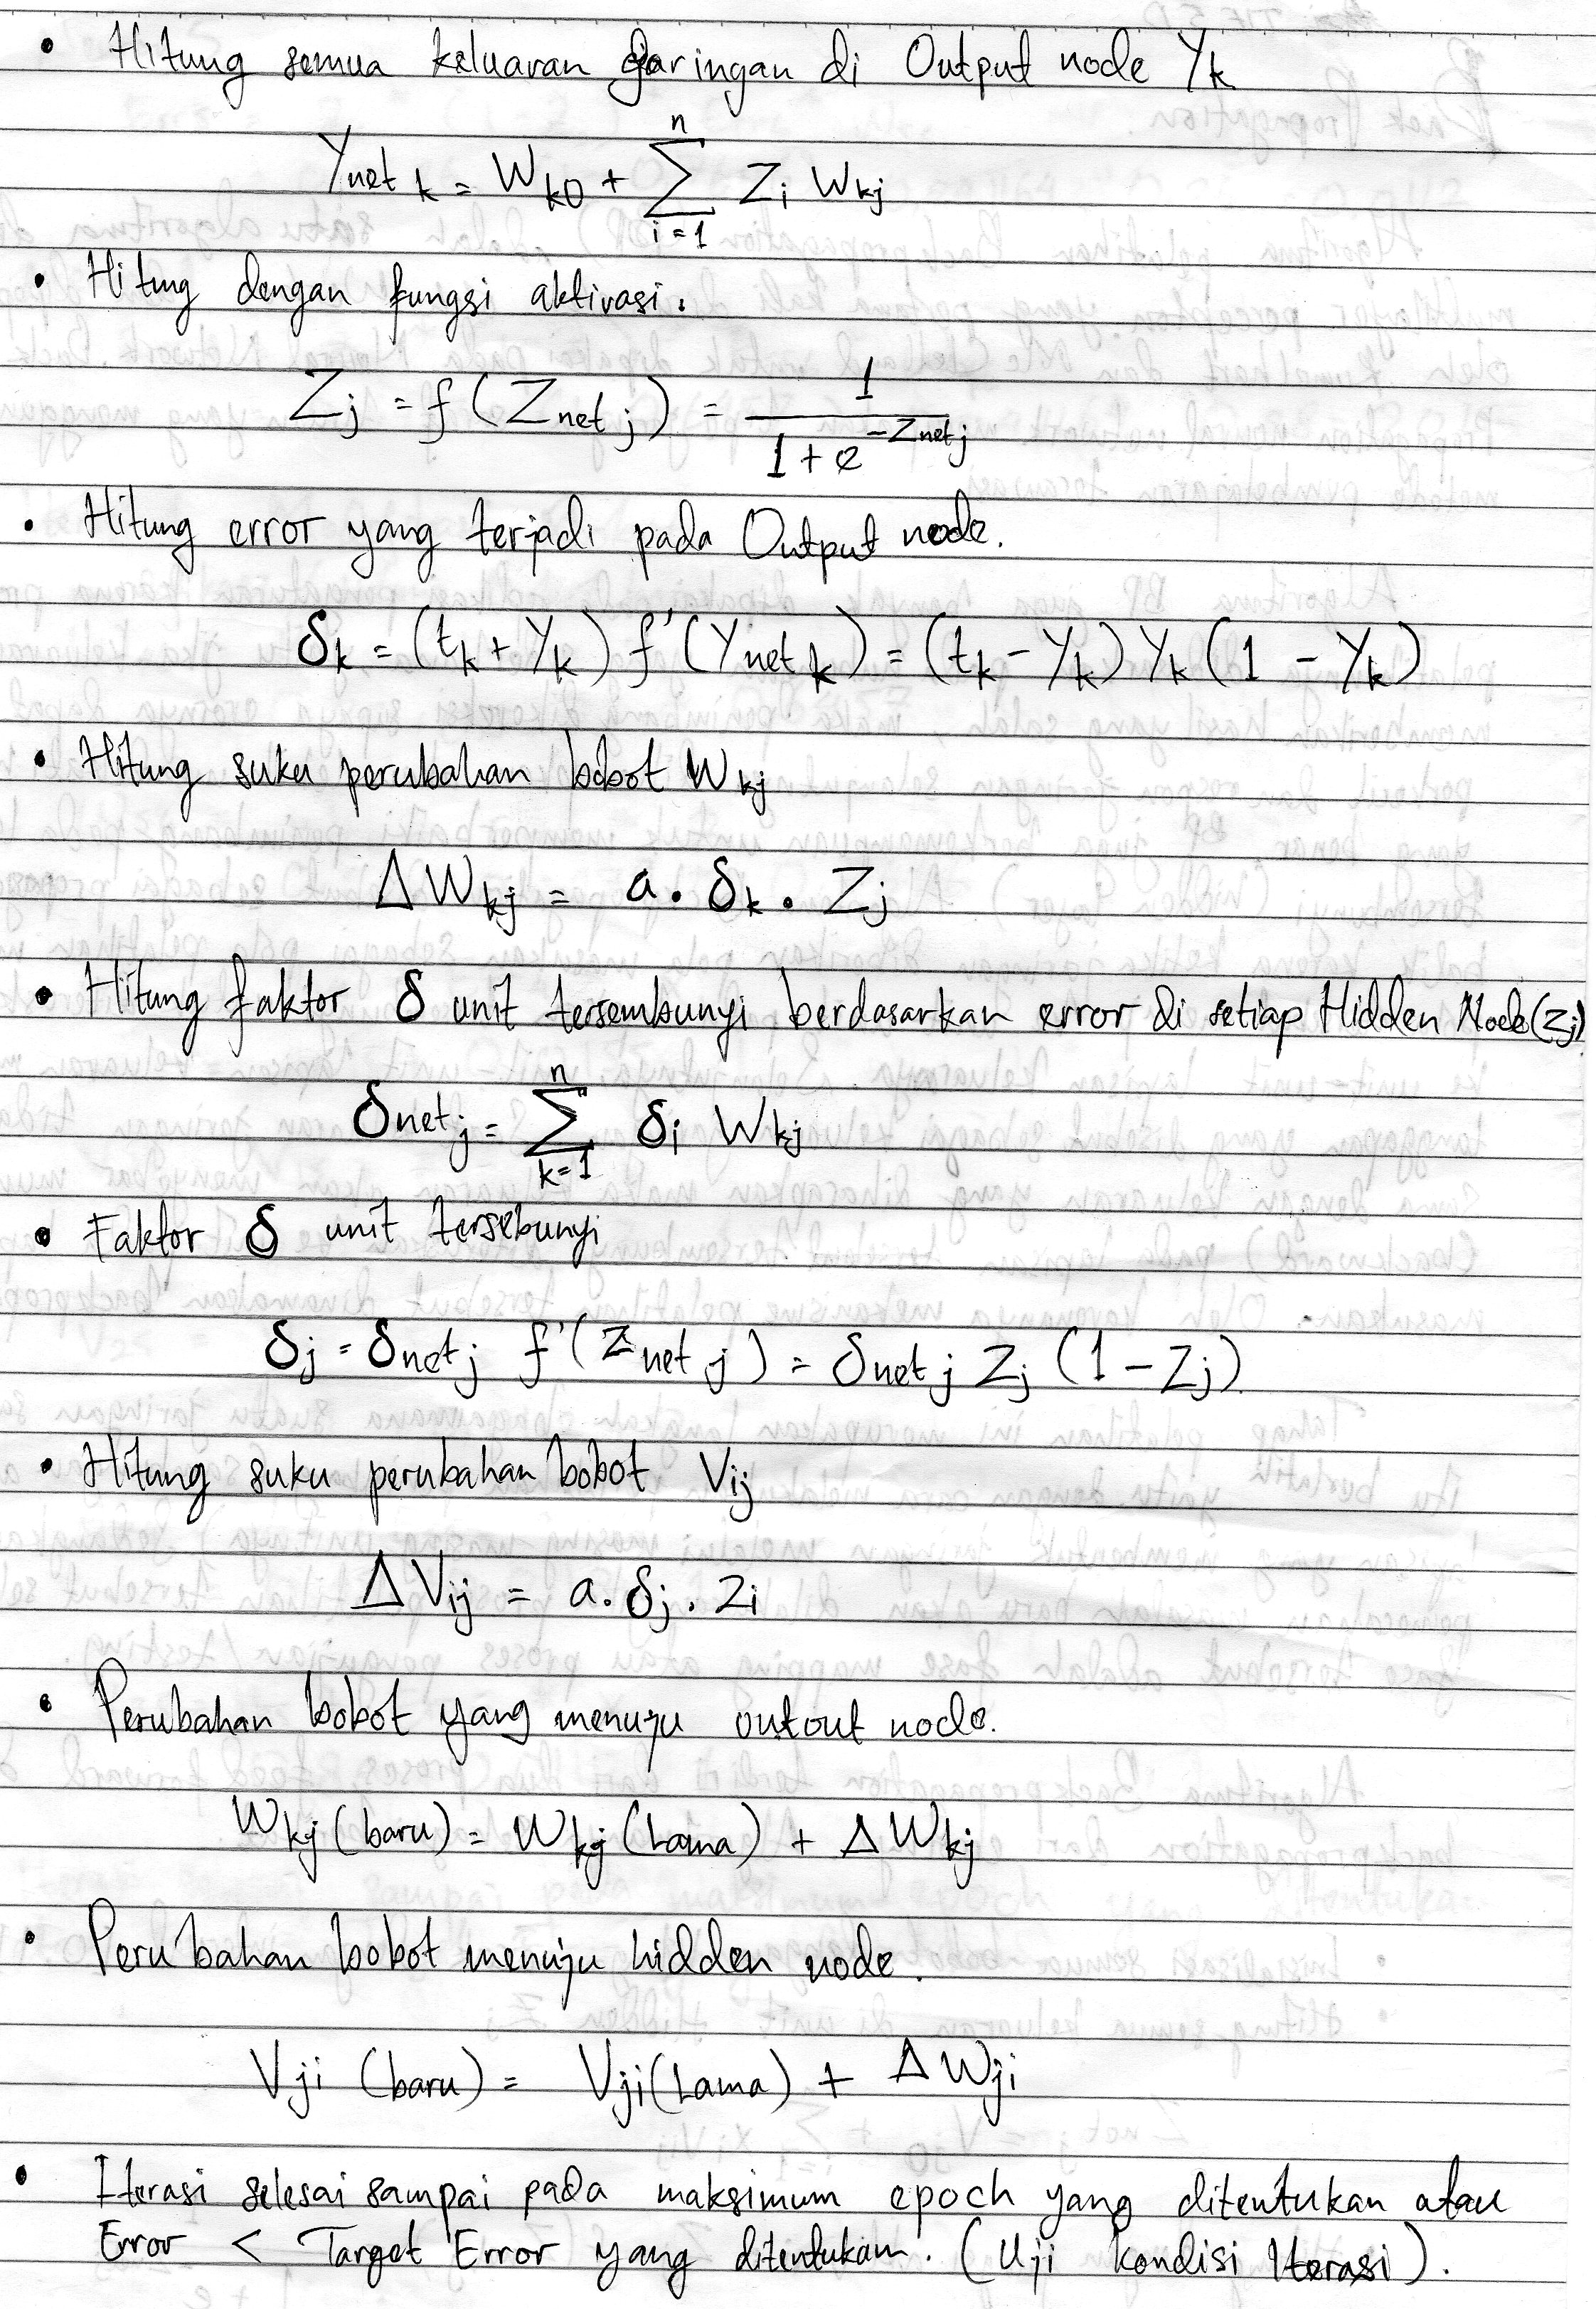 • Hitung semua keluaran jaringan di Output node Yk
Ynet k = Wk0 + n∑i=1 Zi Wkj
• Hitung dengan fungsi aktivasi.
Zj = f(Znet j) = 1 / (1 + e^-Znet j)
• Hitung error yang terjadi pada Output node.
δk = (tk + Yk) f'(Ynet k) = (tk - Yk) Yk (1 - Yk)
• Hitung suku perubahan bobot Wkj
ΔWkj = a . δk . Zj
• Hitung faktor δ unit tersembunyi berdasarkan error di setiap Hidden Node (Zj)
δnet j = n∑k=1 δi Wkj
• Faktor δ unit tersebunyi
δj = δnet j f'(Znet j) = δnet j Zj (1 - Zj)
• Hitung suku perubahan bobot Vij
ΔVij = a . δj . Zi
• Perubahan bobot yang menuju outout node.
Wkj (baru) = Wkj (Lama) + ΔWkj
• Perubahan bobot menuju hidden node.
Vji (baru) = Vji (Lama) + ΔWji
• Iterasi selesai sampai pada maksimum epoch yang ditentukan atau
Error < Target Error yang ditentukan. (Uji kondisi Iterasi).